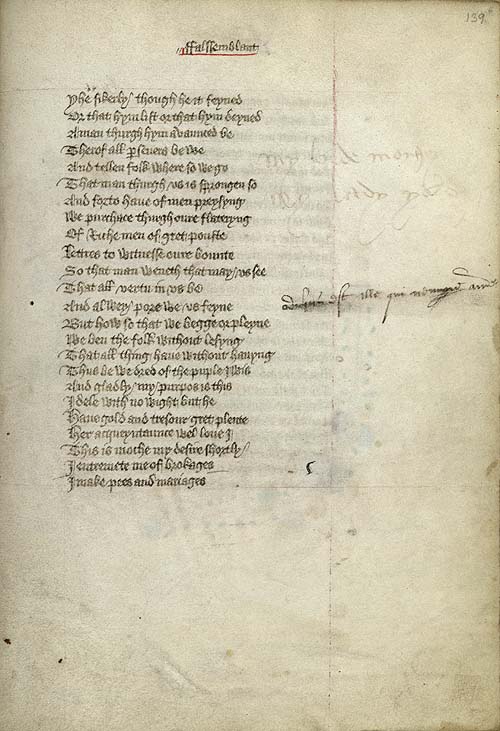 139
ffalssemblant
Yhe sikerly / though he it feyned
Or that hym list or that hym deyned
A man thurgh hym avaunced be
Therof all p̲seuers be we
And tellen folk where so we go
That man thurgh / vs is sprongen so
And forto haue of men preysyng
We purchace thurgh oure flateryng
Of Riche men of gret pouste
Lettres to witnesse oure bounte
So that man weneth that may / vs see
That all / vertu in / vs be
And alwey / pore we / vs feyne
But how so that we begge or pleyne
We ben the folk without lesyng
That all thing haue without hauyng
Thus be we dred of the puple iwis
And gladly / my / purpos is this
I dele with no wight but he
Haue gold and tresour gret plente
Her acqueyntaunce wel loue I
This is moche my desire shortly /
I entremete me of brokages
I make pees and mariages
my
est ille qui